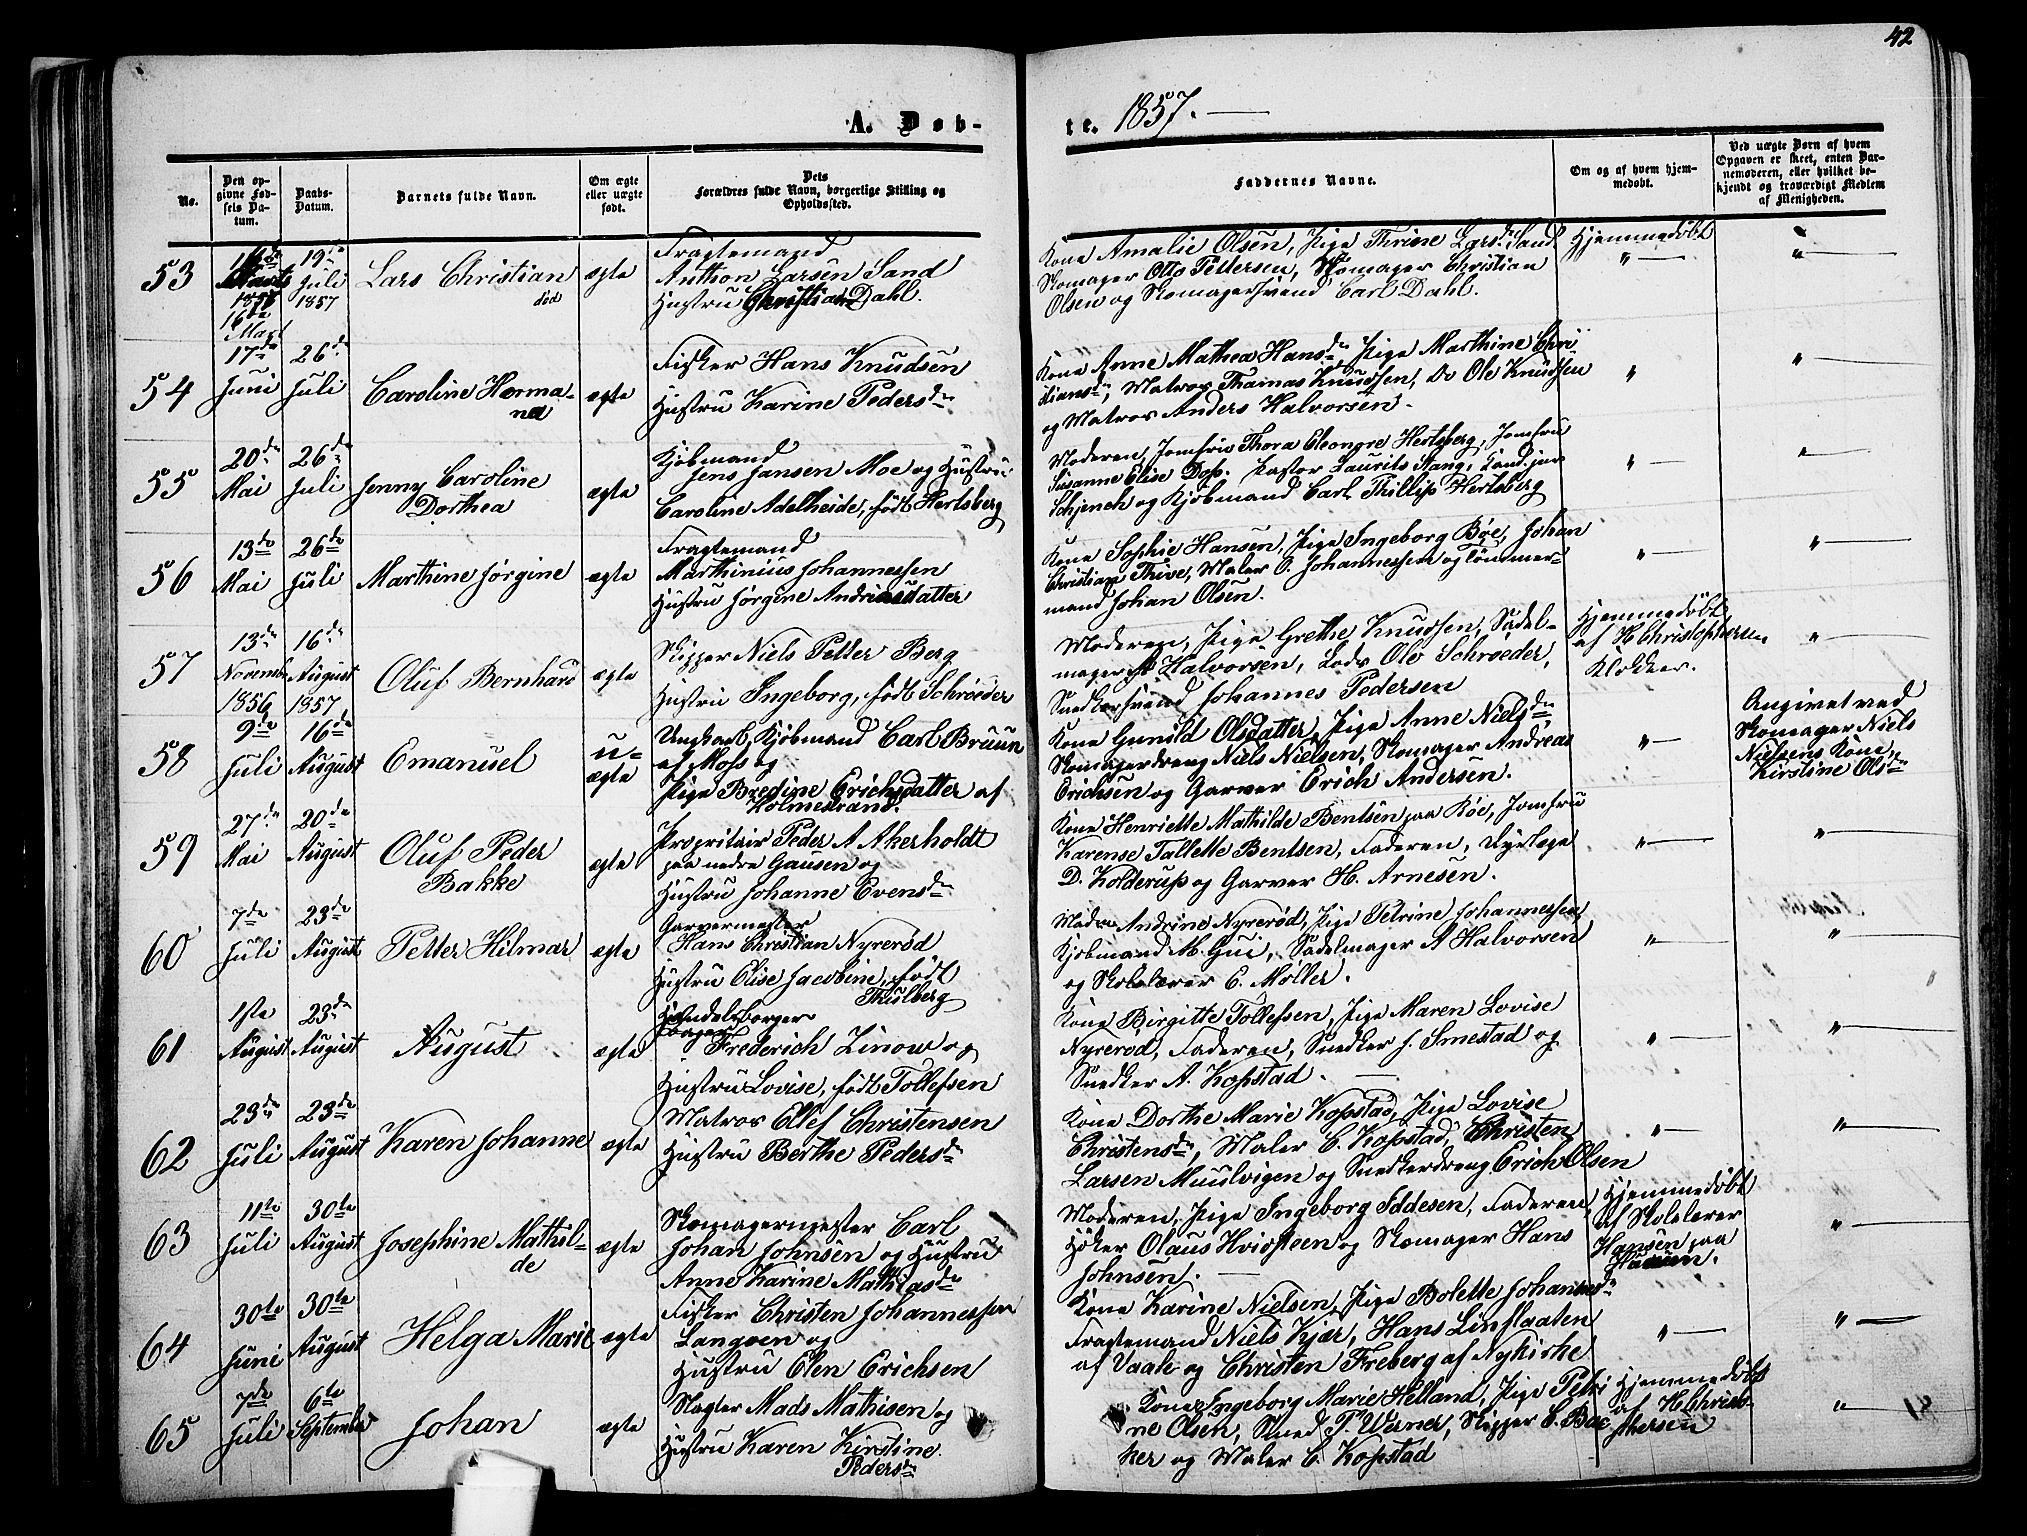 42
A. Døb-
te. 1857.
No.
Den op-
givne Fød-
sels Da-
tum.
Daabs-
Datum.
Barnets fulde Navn.
Om ægte
eller uægte
født.
Dets
Forældres fulde Navn, borgerlige Stilling og
Opholdssted.
Faddernes Navne.
Om og af hvem hjem-
medøbt.
Ved uægte Børn af hvem
Opgaven er skeet, enten Bar-
nemoderen, eller hvilket be-
kjendt og troværdigt Medlem
af Menigheden.
53
16de
Marts
16de
Mart
19de
Juli
1857
Lars Christian
død
ægte
Fragtemand
Anthon Larsen Sand
Hustru Christiane Dahl.
Kone Amalie Olsen, Pige Thrine Larsdr Sand
Skomager Otto Pettersen, Skomager Christian
Olsen og Skomagersvend Carl Dahl.
Hjemmedøbt
" —
" —
54
17de
Juni
26de
Juli
Caroline Herma-
na
ægte
Fisker Hans Knudsen
Hustru Karine Pedersdr
Kone Anne Mathea Hansdr, Pige Marthine Chri
stiansdr, Matros Thomas Knudsen, Do Ole Knudsen
og Matros Anders Halvorsen.
"
" —
55
20de
Mai
26de
Juli
Jenny Caroline
Dorthea
ægte
Kjøbmand
Jens Jansen Moe og Hustru
Caroline Adelheide, født Hertsberg
Moderen, Jomfru Thora Eleonore Hertsberg, Jomfru
Susanne Elise Dop. Pastor Laurits Stang, Kand. jur
Schjench og Kjøbmand Carl Phillip Hertsberg
" —
" —
56
13de
Mai
26de
Juli
Marthine Jørgine
ægte
Fragtemand
Marthinius Johannessen
Hustru Jørgine Andriasdatter
Kone Sophie Hansen, Pige Ingeborg Bøe, Johan
Christian Thive, Maler O. Johannessen og Tømmer-
mand Johan Olsen.
" —
" —
57
13de
Novemb
1856
16de
August
1857
Oluf Bernhard
ægte
Skipper Niels Petter Berg
Hustru Ingeborg, født Schrøeder
Moderen, Pige Grethe Knudsen, Sadel-
mager A Halvorsen, Lods Ole Schroeder,
Snedkersvend Johannes Pedersen
Hjemmedøbt
af H Christophersen
Klokker.
" —
58
9de
Juli
16de
August
Emanuel
u-
ægte
Ungkarl, Kjøbmand Carl Bruun
af Moss og
Pige Bredine Erichsdatter af
Holmestrand.
Kone Gunild Olsdatter, Pige Anne Nielsdr,
Skomagerdreng Niels Nielsen, Skomager Andreas
Erichsen og Garver Erich Andersen.
" —
Angivet ved
Skomager Niels
Nielsens Kone,
Kirstine Olsdr
59
27de
Mai
20de
August
Oluf Peder
Bakke
ægte
Propritair Peder A Akerholdt
paa nedre Gausen og
Hustru Johanne Evensdr
Kone Henriette Mathilde Bentsen paa Bøe, Jomfru
Karense Tallette Bentsen, Faderen, Dyrlæge
D. Kolderup og Garver H. Arnesen.
" —
" —
60
7de
Juli
23de
August
Petter Hilmar
ægte
Garvermester
Hans Christian Nyrerød
Hustru Elise Jacobine, født
Thulberg
Madm Andrine Nyrerød, Pige Petrine Johannessen
Kjøbmand M. Gui, Sadelmager A Halvorsen
og Skolelærer E. Møller.
" —
" —
61
1ste
August
23de
August
August
ægte
Handelsborger
Frederich Linow og
Hustru Lovise, født Tollefsen
Kone Birgitte Tollefsen, Pige Maren Lovise
Nyrerød, Faderen, Snedker J. Smestad og
Snedker A. Kopstad. —
" —
" —
62
23de
Juli
23de
August
Karen Johanne
ægte
Matros Ellef Christensen
Hustru Berthe Pedersdr
Kone Dorthe Marie Kopstad, Pige Lovise
Christensdr, Maler C. Kopstad, Christen
Larsen Muulvigen og Snedkerdreng Erich Olsen
" —
" —
63
11te
Juli
30te
August
Josephine Mathil-
de
ægte
Skomagermester Carl
Johan Johnsen og Hustru
Anne Karine Mathiasdr
Moderen, Pige Ingeborg Eddesen, Faderen,
Høker Olaus Hvidsteen og Skomager Hans
Johnsen. —
Hjemmedøbt
af Skolelærer
Hansen paa
" —
64
30te
Juni
30te
August
Helga Marie
ægte
Fisker Christen Johannessen
Langøen og
Hustru Elen Erichsen
Kone Karine Nielsen, Pige Bolette Johannesdr
Fragtemand Niels Kjær, Hans Linflaaten
af Vaale og Christen Freberg af Nykirke
" —
" —
65
7de
Juli
6te
September
Johan
ægte
Slagter Mads Mathisen og
Hustru Karen Kirstine
Pedersdr
Kone Ingeborg Marie Helland, Pige Petri
ne Olsen, Smed P. Werner, Skipper C. Bac
ker og Maler C. Kopstad
Hjemmedøbt
af H Christo-
phersen
" —